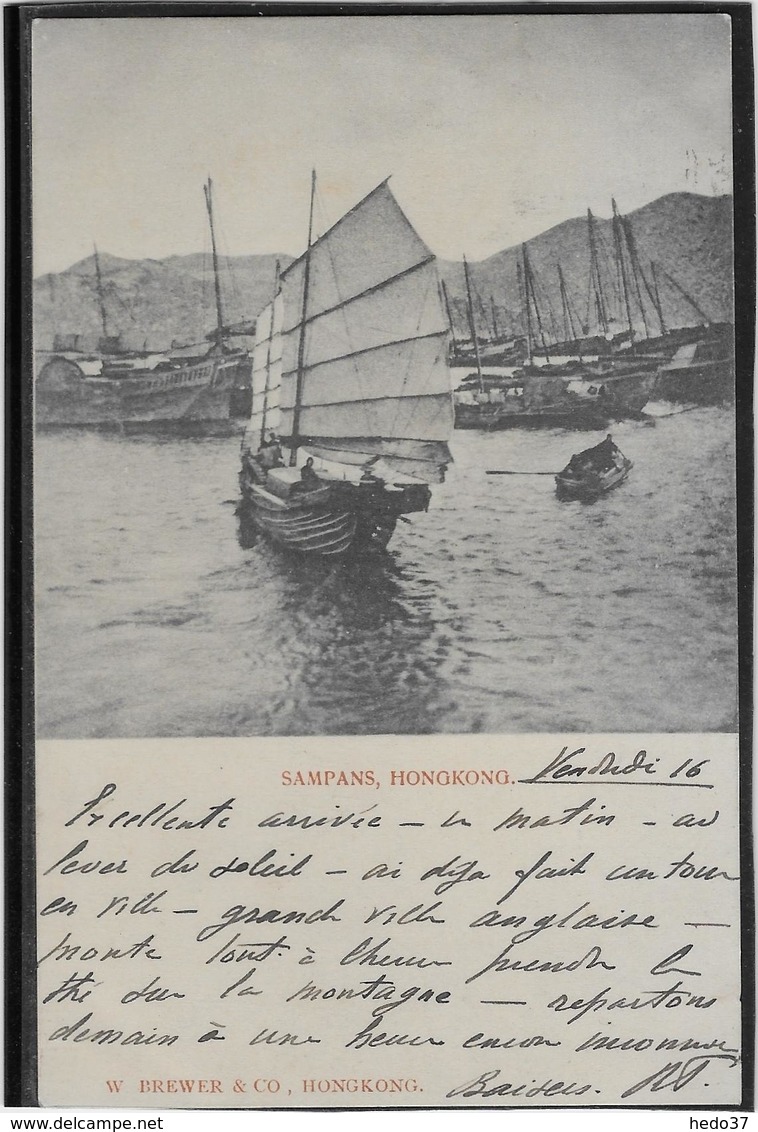 SAMPANS, HONGKONG. Vendredi 16
Excellente arrivée – ce matin – au
lever du soleil – ai déjà fait un tour
en ville – grande ville anglaise –
monte tout à l'heure prendre le
thé sur la montagne – repartons
demain à une heure encore inconnue
W BREWER & CO, HONGKONG. Baisers.
www.delcampe.net
hedo37